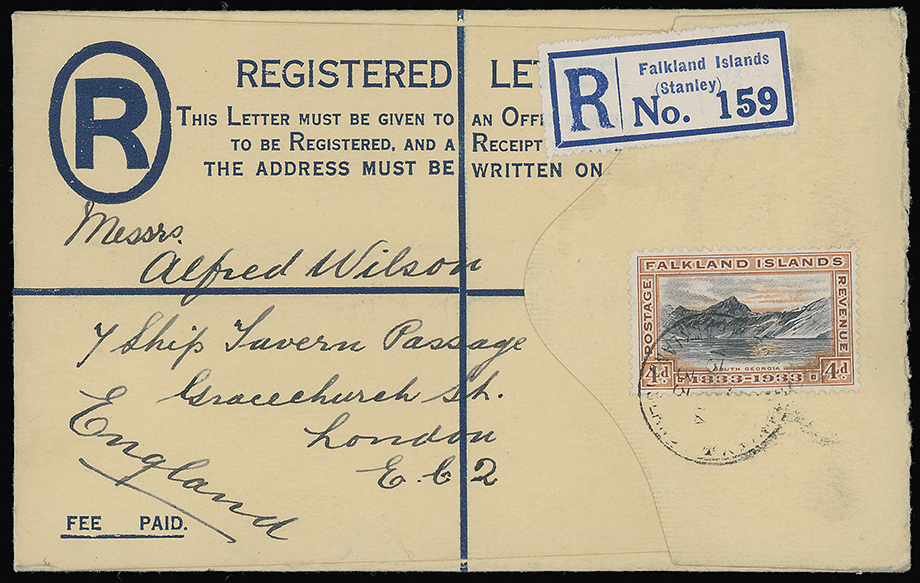 R
REGISTERED LE
THIS LETTER MUST BE GIVEN TO AN OFF
TO BE REGISTERED, AND A RECEIPT
THE ADDRESS MUST BE WRITTEN ON
R
Falkland Islands
(Stanley)
No. 159
Messrs.
Alfred Wilson
7 Ship Tavern Passage
Gracechurch St.
London
E.C 2
England
FEE PAID.
FALKLAND ISLANDS
POSTAGE
REVENUE
SOUTH GEORGIA
4d 1833-1933 4d